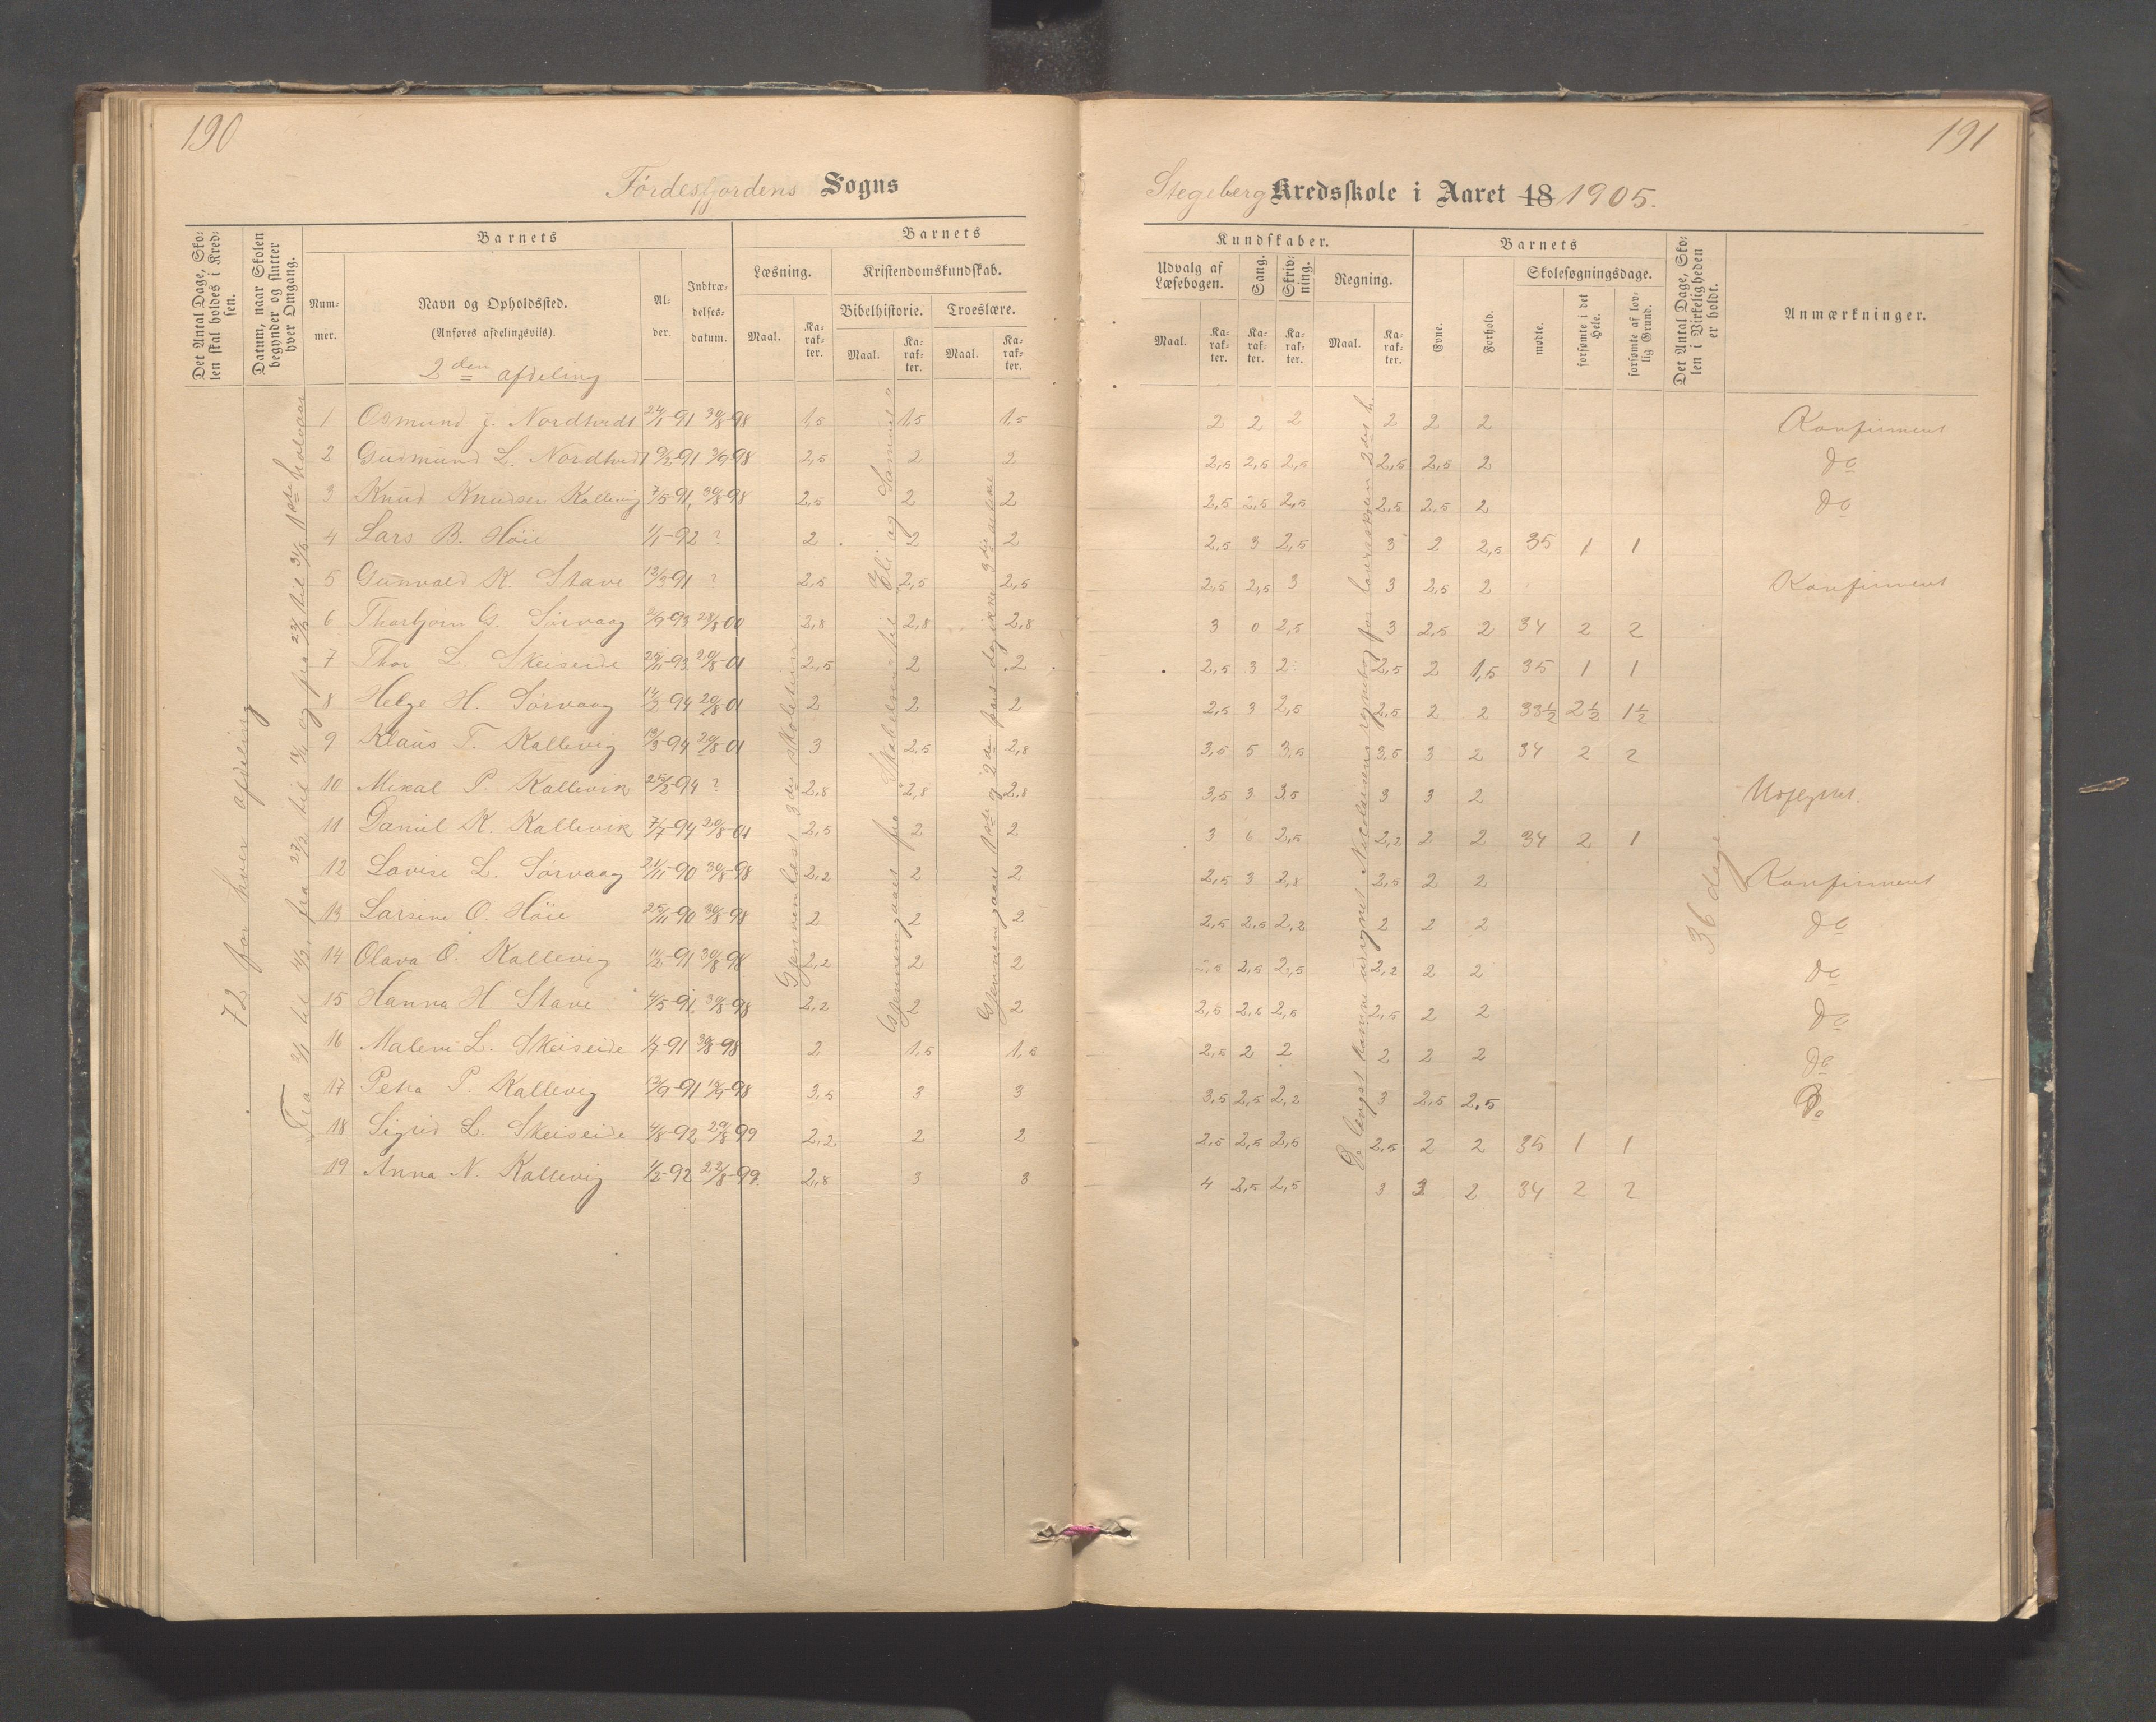 190
Fördesfjordens Sogns
Det Antal Dage, Sko-
len skal holdes i Kred-
sen.
Datum, naar Skolen
begynder og slutter
hver Omgang.
Barnets
Num-
mer.
Navn og Opholdssted.
(Anføres afdelingsviis).
Al-
der.
Indtræ-
delses-
datum.
Barnets
Læsning.
Maal.
Ka-
rak-
ter.
Kristendomskundskab.
Bibelhistorie.
Troeslære.
Maal.
Ka-
rak-
ter.
Maal.
Ka-
rak-
ter.
2den afdeling
72 for hver afdeling
1 Osmund J. Nordtvedt 24/1-91 30/8-98 1,5 1,5 1,5
2 Gudmund L. Nordtvedt 2,5 2 2
3 Knud Knudsen Kallevig 7/5-91, 30/8-98 2,5 2 2
4 Lars B. Höie 1/1-92 ? 2 2 2
5 Gunvald K. Stave 12/3-91 ? 2,5 2,5 2,5
6 Thorbjörn G. Sörvaag 28/8 00 2,8 2,8 2,8
7 Thor L. Skeiseide 25/11-93 20/8-01 2,5 2 2
8 Helge H. Sörvaag 14/2-94 20/8-01 2 2 2
9 Klaus T. Kallevig 20/8 01 3 2,5 2,8
10 Mikal P. Kallevik 25/2-94 ? 2,8 2,8 2,8
11 Daniel K. Kallevik 7/7-94 20/8-01 2,5 2 2
12 Lovise L. Sörvaag 21/11-90 30/8-98 2,2 2 2
13 Larsine O. Höie 25/11-90 30/8-98 2 2 2
14 Olava O. Kallevig 30/8-98 2,2 2 2
15 Hanna H. Stave 4/5-91. 30/8-98 2,2 2 2
16 Maleni L. Skeiseide 1/7-91 30/8-98 2 1,5 1,5
17 Petra P. Kallevig 13/9-91 3,5 3 3
18 Sigrid L. Skeiseide 4/8-92 29/8 99 2,2. 2 2
19 Anna N. Kallevig 1/2-92 22/8-99. 2,8 3 3
191
Stegeberg Kredsskole i Aaret 18 1905.
Kundskaber.
Udvalg af
Læsebogen.
Maal.
Ka-
rak-
ter.
Sang.
Ka-
rak-
ter.
Skriv-
ning.
Ka-
rak-
ter.
Regning.
Maal.
Ka-
rak-
ter.
Barnets
Evne.
Forhold.
Skolesøgningsdage.
mødte.
forsømte i det
Hele.
forsømte af lov-
lig Grund.
Det Antal Dage, Sko-
len i Virkeligheden
er holdt.
Anmærkninger.
2 2 2 2 2 2 Konfirmeret
2,5 2,5 2,5 2,5 2,5 2 do
2,5 2,5 2,5 2,5 2,5 2 do
2,5 3 2,5 3 2 2,5 35 1 1
2,5 2,5 3 3 2,5 2 Konfirmeret
3 0 2,5 3 2,5 2 34 2 2
2,5 3 2 2,5 2 1,5 35 1 1
2,5 3 2,5 2,5 2 2 33½ 2½ 1½
3,5 5 3,5 3,5 3 2 34 2 2
3,5 3 3,5 3 3 2
3 6 2,5 2,2 2 2 34 2 1
2,5 3 2,8 2,5 2 2 Konfirmeret
2,5 2,5 2,2 2 2 2 do
2,5 2,5 2,5 2,2 2 2 do
2,5 2,5 2,5 2,5 2 2 do
2,5 2 2 2 2 2 do
3,5 2,5 2,2 3 2,5 2,5 Do
2,5 2,5 2,5 2,5 2 2 35 1 1
4 2,5 2,5 3 3 2 34 2 2
36 dage